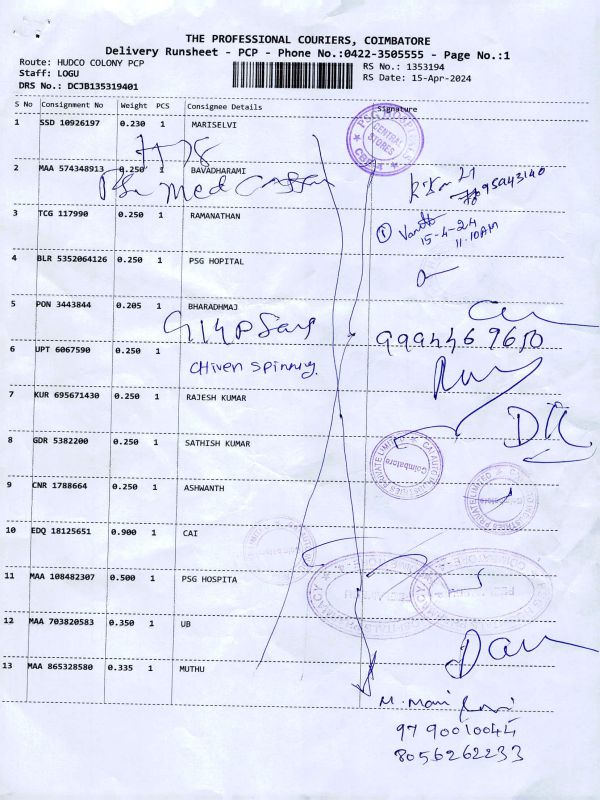 THE PROFESSIONAL COURIERS, COIMBATORE
Delivery Runsheet - PCP - Phone No.:0422-3505555 - Page No.:1
Route: HUDCO COLONY PCP
RS No.: 1353194
Staff: LOGU
RS Date: 15-Apr-2024
DRS No.: DCJB135319401
S No Consignment No Weight PCS Consignee Details Signature
1 SSD 10926197 0.230 1 MARISELVI
PSG HOSPITALS CENTRAL STORES
2 MAA 574348913 0.250 1 BAVADHARAMI
3 TCG 117990 0.250 1 RAMANATHAN
15-4-24
11.10AM
4 BLR 5352064126 0.250 1 PSG HOPITAL
5 PON 3443844 0.205 1 BHARADHMAJ
9994469650
6 UPT 6067590 0.250 1 Chiven Spinning.
7 KUR 695671430 0.250 1 RAJESH KUMAR
8 GDR 5382200 0.250 1 SATHISH KUMAR
Coimbatore
9 CNR 1788664 0.250 1 ASHWANTH
10 EDQ 18125651 0.900 1 CAI
11 MAA 108482307 0.500 1 PSG HOSPITA
12 MAA 703820583 0.350 1 UB
13 MAA 865328580 0.335 1 MUTHU
M. Mani
9790010044
8056262233